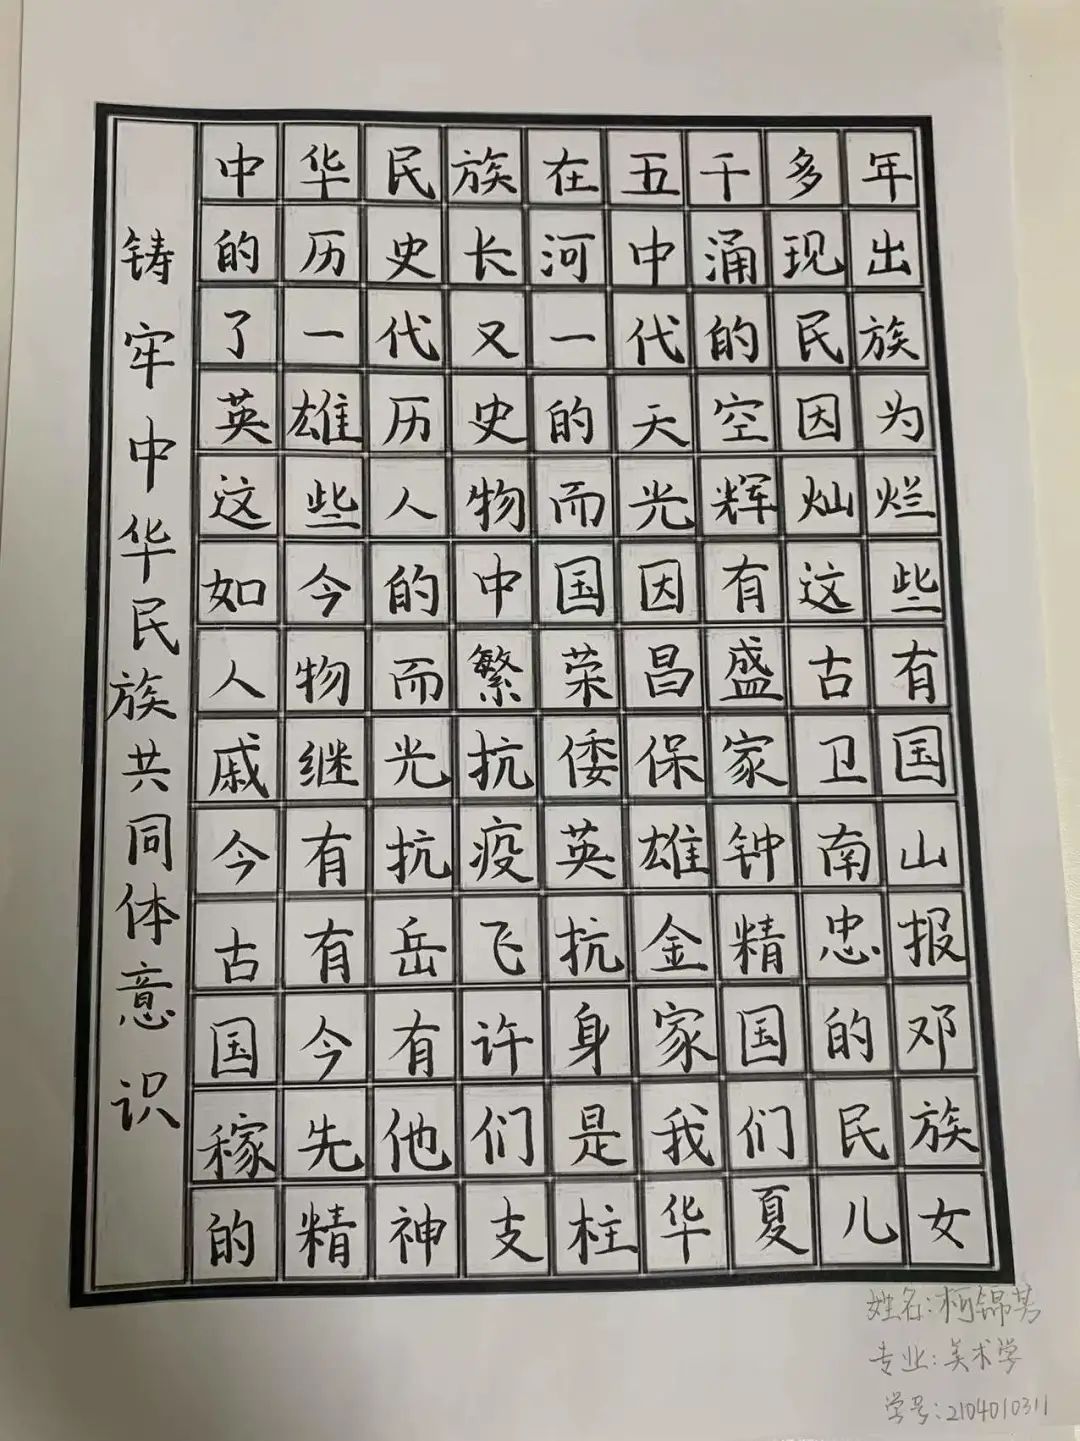 铸牢中华民族共同体意识
中华民族在五千多年
的历史长河中涌现出
了一代又一代的民族
英雄历史的天空因为
这些人物而光辉灿烂
如今的中国因有这些
人物而繁荣昌盛古有
戚继光抗倭保家卫国
今有抗疫英雄钟南山
古有岳飞抗金精忠报
国今有许身家国的邓
稼先他们是我们民族
的精神支柱华夏儿女
姓名:柯锦芳
专业:美术学
学号:2104010311